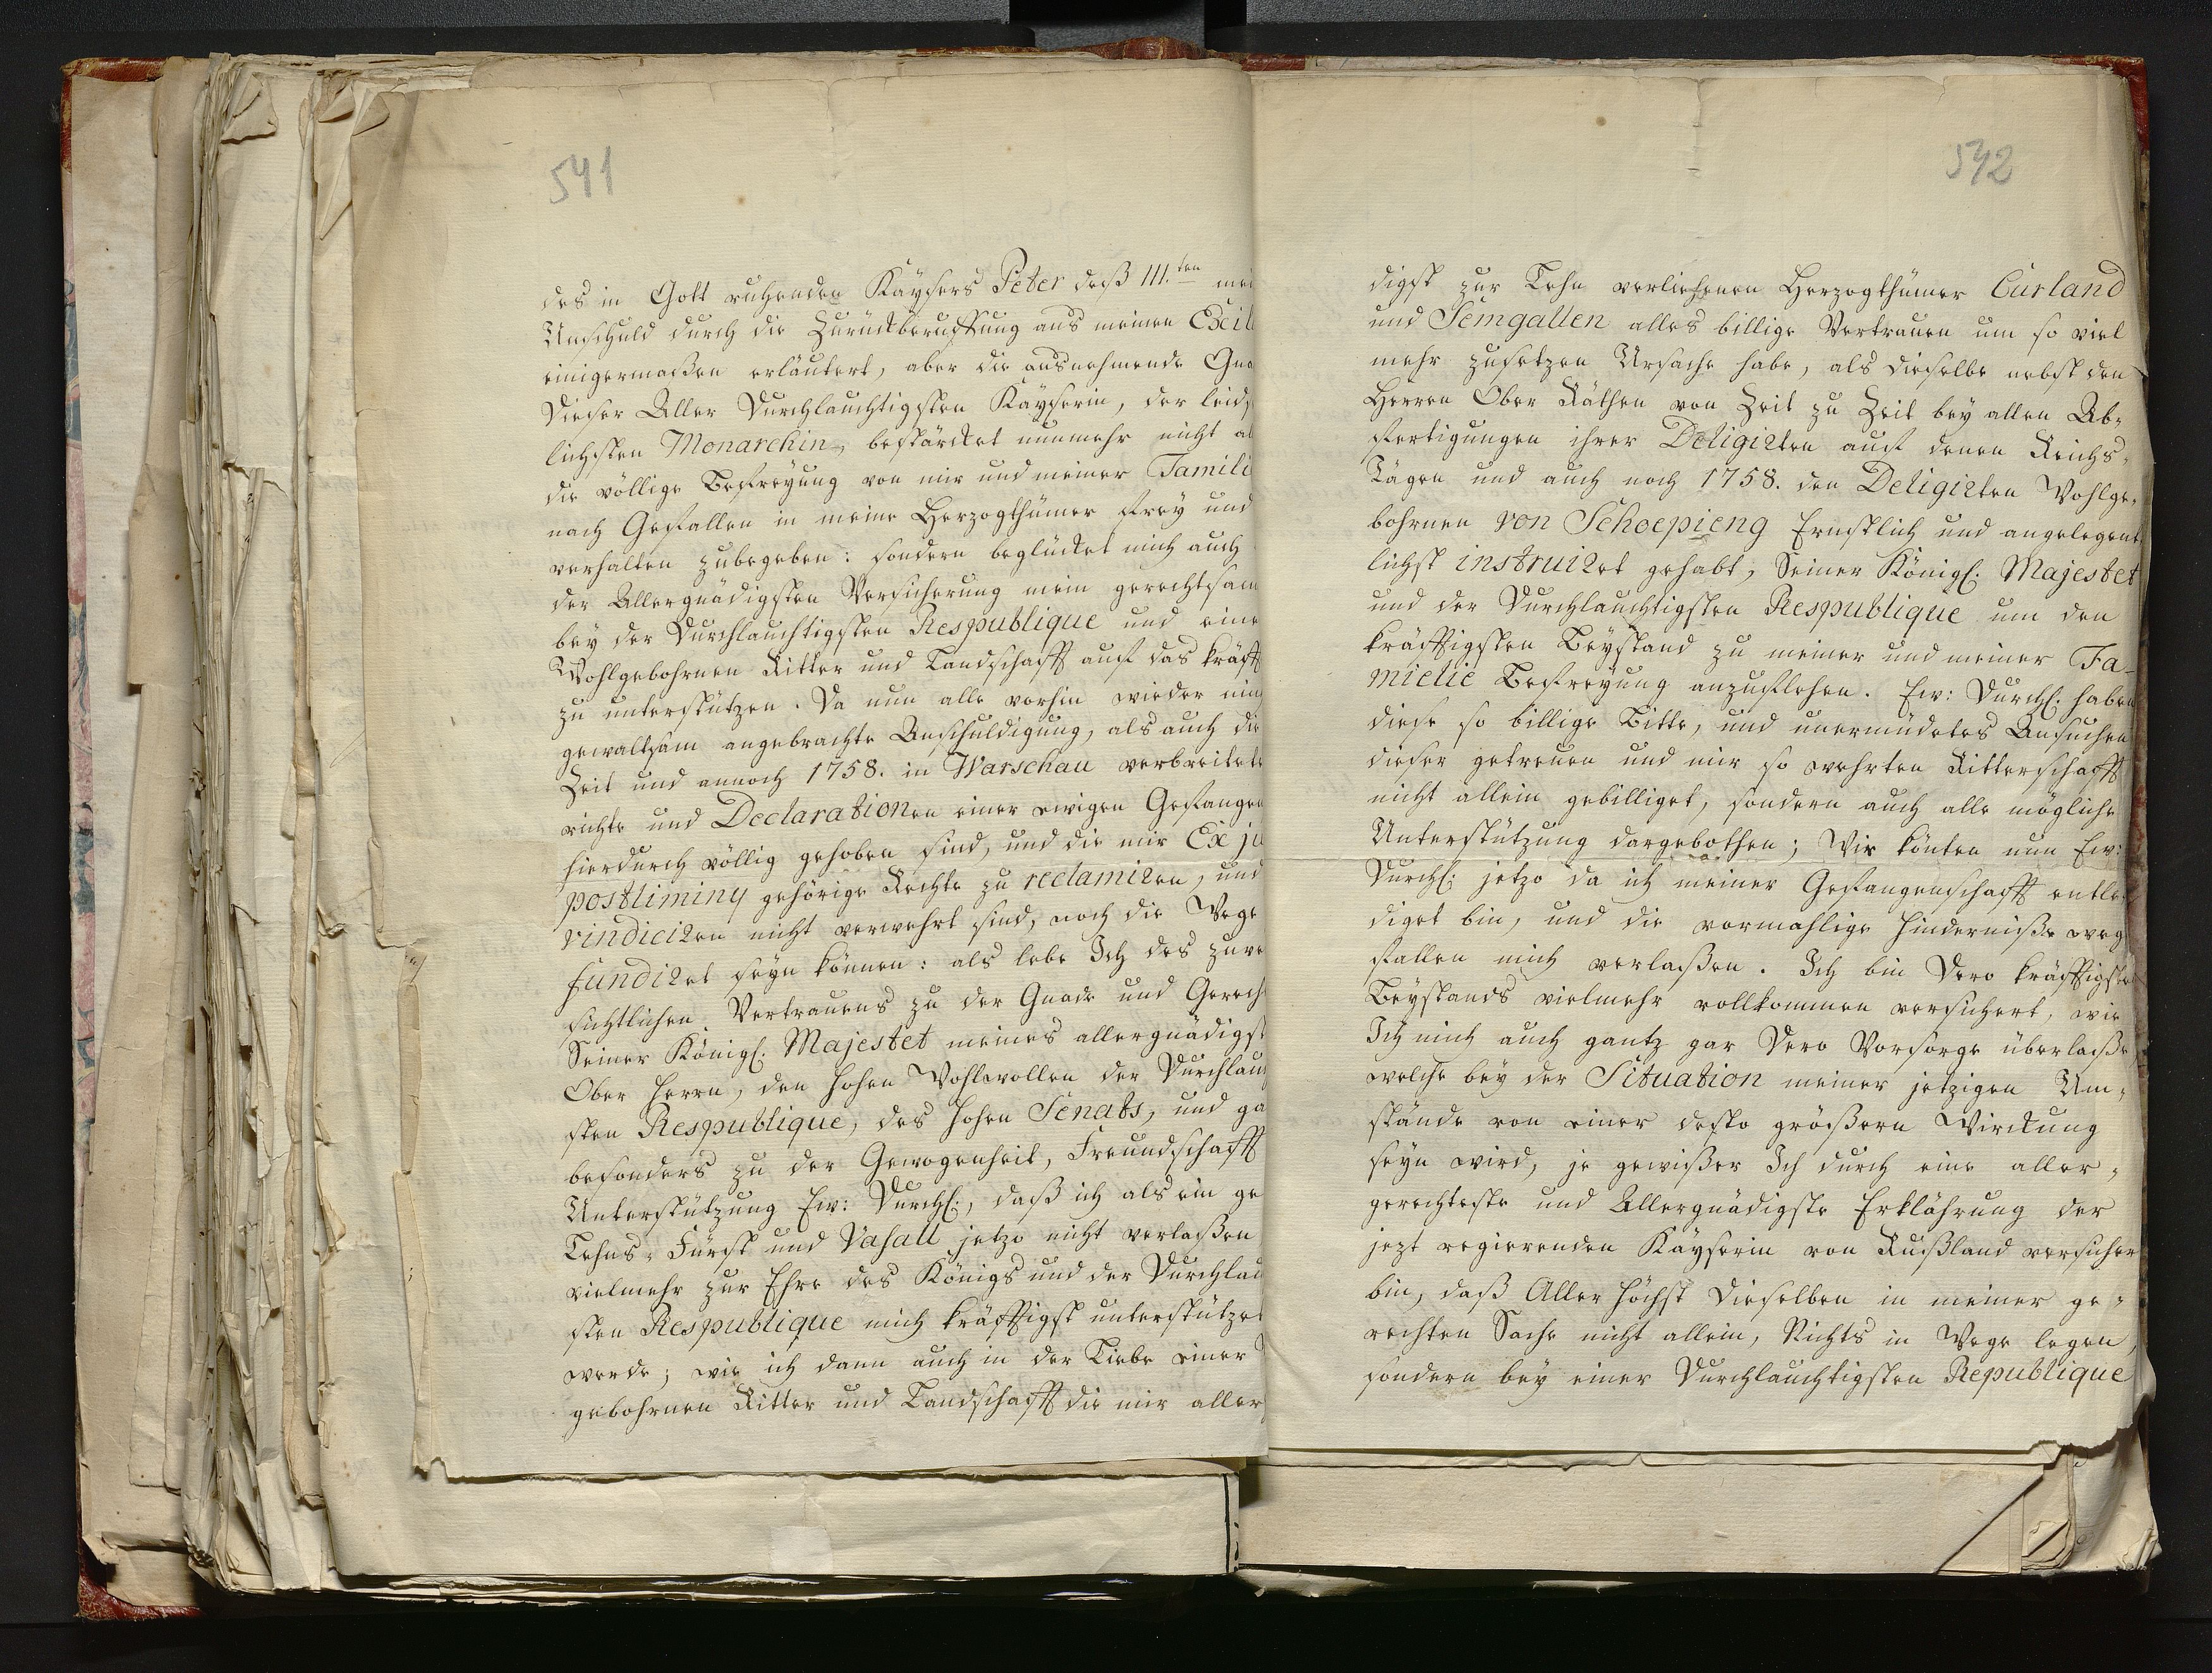 541
des in Gott ruhenden Kaysers Peter deß III.ten mei
Unschuld durch die Zurückberuffung aus meinen Exil
einigermaßen erläutert, aber die ausnehmende Gna
Dieser Aller Durchlauchtigsten Kayserin, der leid,
lichsten Monarchin, bestärcket nunmehr nicht al
die völlige Befreyung von mir und meiner Famili
nach Gefallen in meine Herzogthümer frey und
verhalten zubegeben: sondern beglücket mich auch
der Allergnädigsten Versicherung mein gerechtsam
bey der Durchlauchtigsten Respublique und eine
Wohlgebohrnen Ritter und Landschafft auf das kräff
zu unterstützen. Da nun alle vorhin wieder mic
gewaltsam angebrachte Anschuldigung, als auch die
Zeit und annoch 1758. in Warschau verbreitete
richte und Declarationen einer ewigen Gefangen
hierdurch völlig gehoben sind, und die mir Ex ju
postliminy gehörige Rechte zu reclamiren, und
vindiciren nicht verwehrt sind, noch die Wege
fundiret seyn können: als lebe Ich des zuve
sichtlichen Vertrauens zu der Gnade und Gerech
Seiner Königl: Majestet meines allergnädigst
Ober Herrn, den hohen Wohlwollen der Durchlau
sten Respublique, des hohen Senats, und ga
besonders zu der Gewogenheit, Freundschafft
Unterstützung Ew: Durchl:, daß ich als ein ge
Lehns-Fürst und Vasall jetzo nicht verlaßen
vielmehr zur Ehre des Königs und der Durchlau
sten Respublique mich kräfftigst unterstützet
werde; wie ich dann auch in der Liebe einer
gebohrnen Ritter und Landschafft die mir aller
542
digst zur Lehn verliehenen Herzogthümer Curland
und Semgallen alles billige Vertrauen um so viel
mehr zusetzen Ursache habe, als dieselbe nebst den
Herren Ober Räthen von Zeit zu Zeit bey allen Ab-
fertigungen ihrer Deligirten auf denen Reichs-
Tägen und auch noch 1758. den Deligirten Wohlge-
bohrnen von Schoepieng Ernstlich und angelegent
lichst instruiret gehabt, Seiner Königl: Majestet
und der Durchlauchtigsten Respublique um den
kräfftigsten Beystand zu meiner und meiner Fa-
mielie Befreyung anzuflehen. Ew: Durchl: haben
diese so billige Bitte, und unermüdetes Ansuchen
dieser getreuen und mir so wehrten Ritterschafft
nicht allein gebilliget, sondern auch alle mögliche
Unterstützung dargebothen; Wir könten nun Ew:
Durchl: jetzo da ich meiner Gefangenschafft entle-
diget bin, und die vormahlige Hinderniße weg
fallen mich verlaßen. Ich bin Dero kräfftigsten
Beystands vielmehr vollkommen versichert, wie
Ich mich auch gantz gar Dero Vorsorge überlaße,
welche bey der Situation meiner jetzigen Um-
stände von einer desto größern Wirckung
seyn wird, je gewißer Ich durch eine aller-
gerechteste und Allergnädigste Erklährung der
jezt regierenden Kayserin von Rußland versicher
bin, daß Aller Höchst Dieselben in meiner ge-
rechten Sache nicht allein, Nichts in Wege legen,
sondern bey einer Durchlauchtigsten Republique